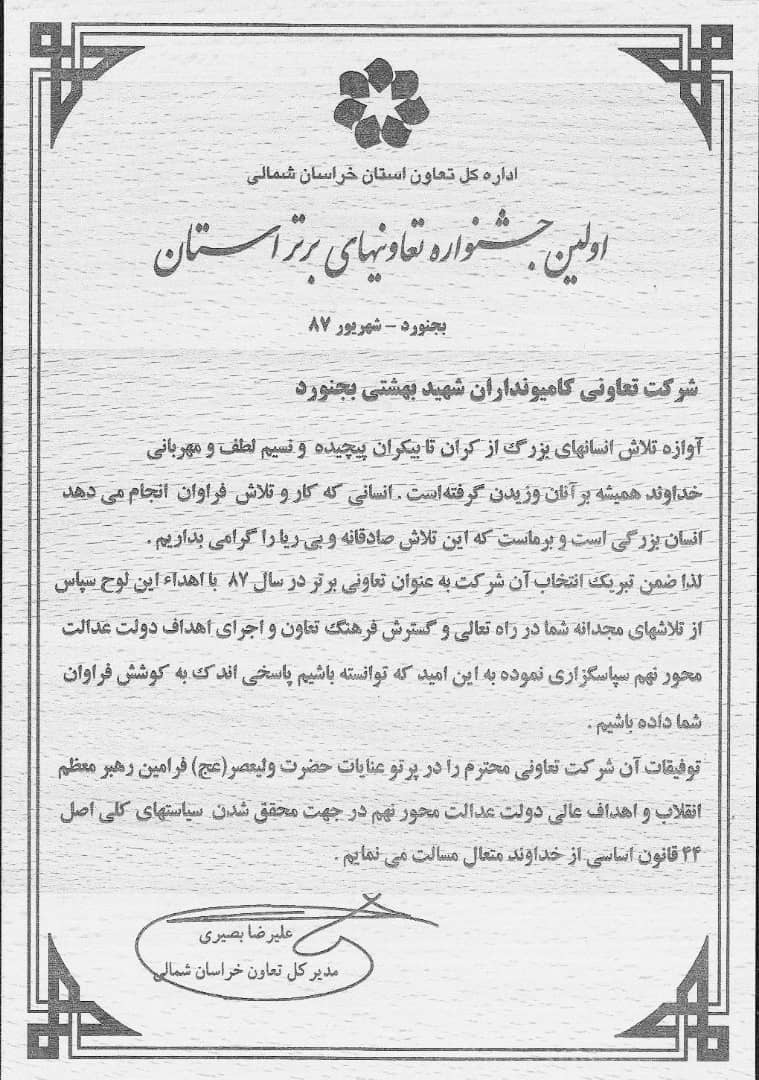 اداره کل تعاون استان خراسان شمالی
اولین جشنواره تعاونیهای برتر استان
بجنورد - شهریور ۸۷
شرکت تعاونی کامیونداران شهید بهشتی بجنورد
آوازه تلاش انسانهای بزرگ از کران تا بیکران پیچیده و نسیم لطف و مهربانی
خداوند همیشه بر آنان وزیدن گرفته است . انسانی که کار و تلاش فراوان انجام می دهد
انسان بزرگی است و برماست که این تلاش صادقانه و بی ریا را گرامی بداریم .
لذا ضمن تبریک انتخاب آن شرکت به عنوان تعاونی برتر در سال ۸۷ با اهداء این لوح سپاس
از تلاشهای مجدانه شما در راه تعالی و گسترش فرهنگ تعاون و اجرای اهداف دولت عدالت
محور نهم سپاسگزاری نموده به این امید که توانسته باشیم پاسخی اندک به کوشش فراوان
شما داده باشیم .
توفیقات آن شرکت تعاونی محترم را در پرتو عنایات حضرت ولیعصر(عج) فرامین رهبر معظم
انقلاب و اهداف عالی دولت عدالت محور نهم در جهت محقق شدن سیاستهای کلی اصل
۴۴ قانون اساسی از خداوند متعال مسالت می نمایم .
علیرضا بصیری
مدیر کل تعاون خراسان شمالی